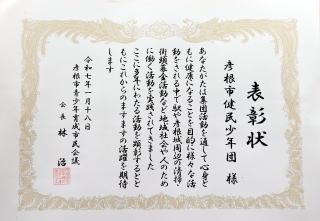 表彰状
彦根市健民少年団 様
あなたがたは集団活動を通して心身と
もに健康になることを目的に様々な活
動をされる中で駅や彦根城周辺の清掃
街頭募金活動など地域社会や人のため
に働く活動を実践されてきました
ここに多年にわたる活動を顕彰するとと
もにこれからのますますの活躍を期待
します
令和七年一月十八日
彦根市青少年育成市民会議
会長 林 治